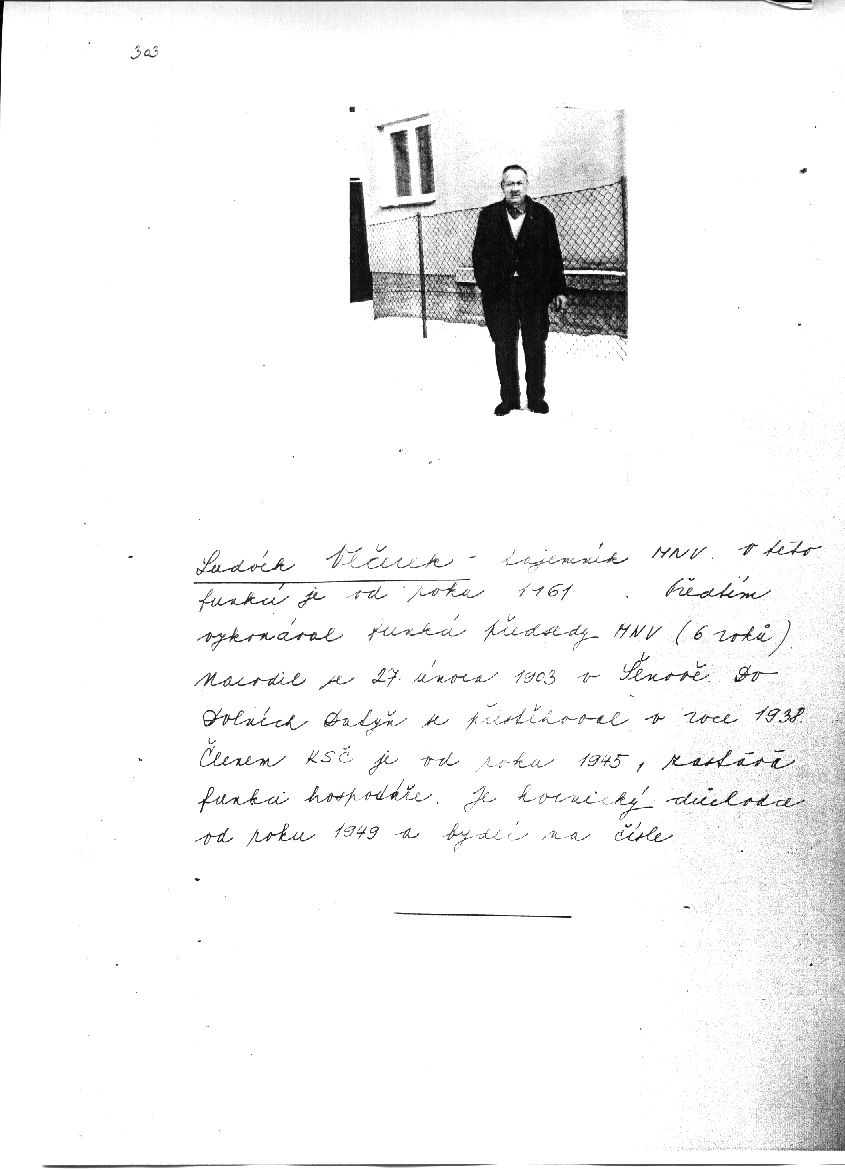 303
Ludvík Vlčurek - tajemník MNV. V této
funkci je od roku 1961. Předtím
vykonával funkci předsedy MNV (6 roků)
Narodil se 27. února 1903 v Šenově. Do
Dolních Datyň se přistěhoval v roce 1938.
Členem KSČ je od roku 1945, zastává
funkci hospodáře. Je hornický důchodce
od roku 1949 a bydlí na čísle